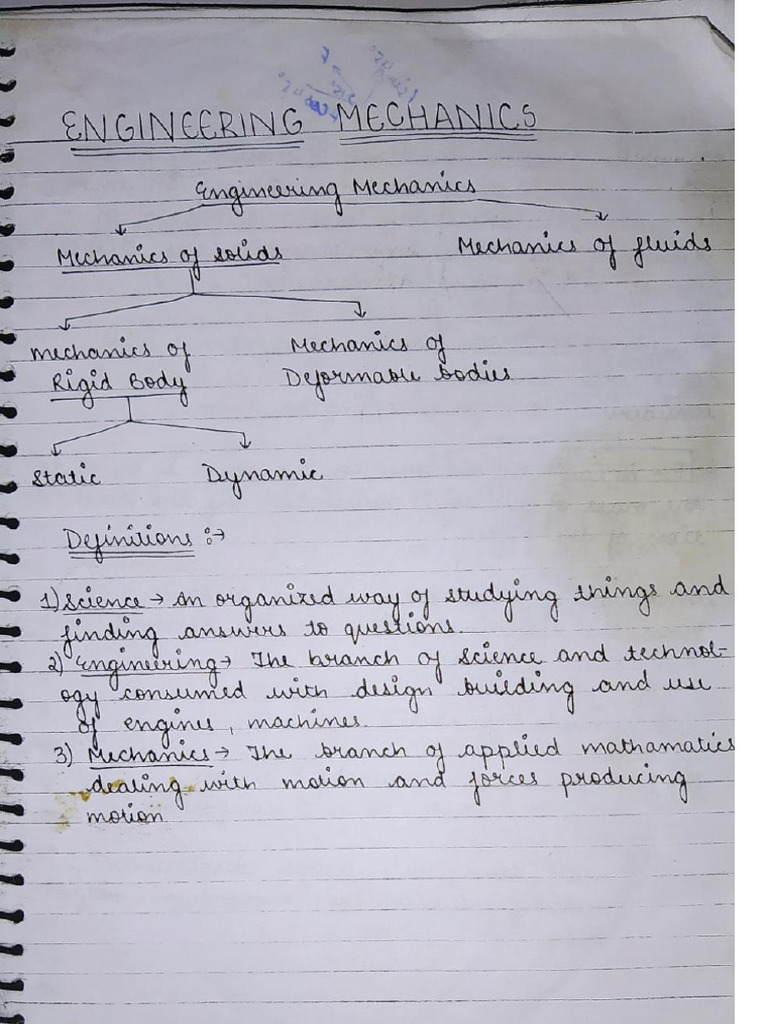 ENGINEERING MECHANICS
Engineering Mechanics
Mechanics of solids Mechanics of fluids
mechanics of Mechanics of
Rigid Body Deformable bodies
Static Dynamic
Definitions :→
1) Science → An organized way of studying things and
finding answers to questions.
2) Engineering → The branch of science and technol-
ogy consumed with design building and use
of engines, machines.
3) Mechanics → The branch of applied mathamatics
dealing with motion and forces producing
motion